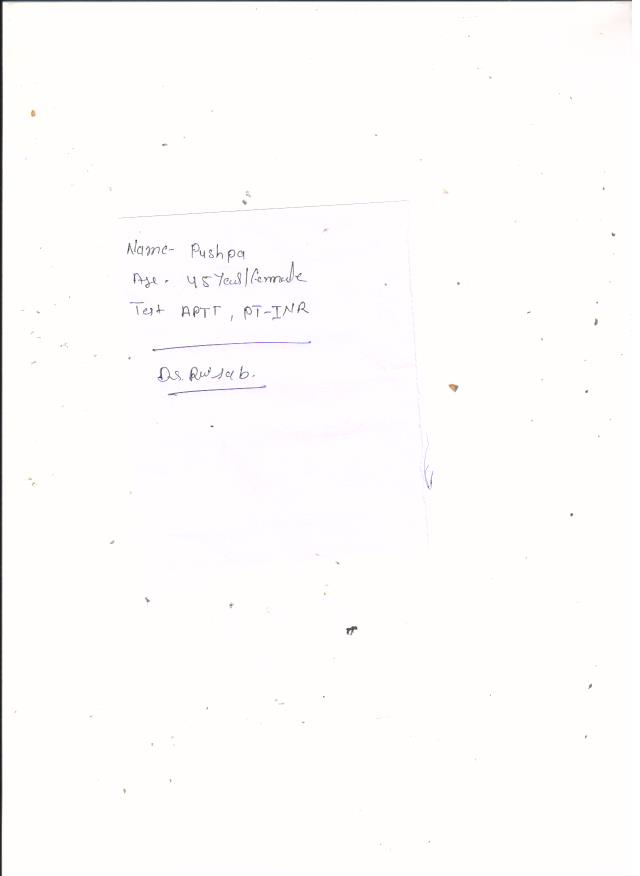 Name- Pushpa
Age- 45 Year/Female
Test APTT, PT-INR